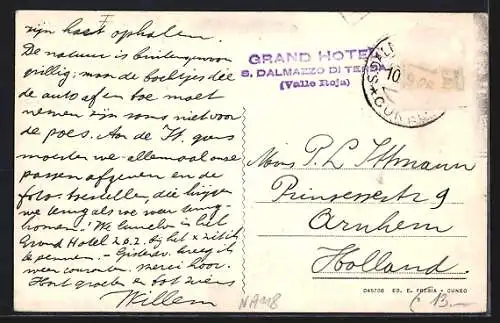 zijn hart ophalen.
De natuur is buitengewoon
grillig; maar de bochtjes die
de auto af en toe moet
nemen zijn soms niet voor
de poes. Aan de It. grens
moesten we allemaal onze
passen afgeven en de
foto-toestellen, die krijgen
we terug als we weer terug-
komen! We lunchen in het
Grand Hotel z.o.z. bij het x zit ik
te pennen. - Gisteren kreeg ik
weer couranten. Merci hoor.
Hart. groeten en tot ziens
Willem
GRAND HOTEL
S. DALMAZZO DI TENDA
(Valle Roja)
10
CUNEO
Mons P. L. Ittmann
Prinsessestr 9
Arnhem
Holland.
045708 ED. E. FRESIA - CUNEO
NA118
13.-